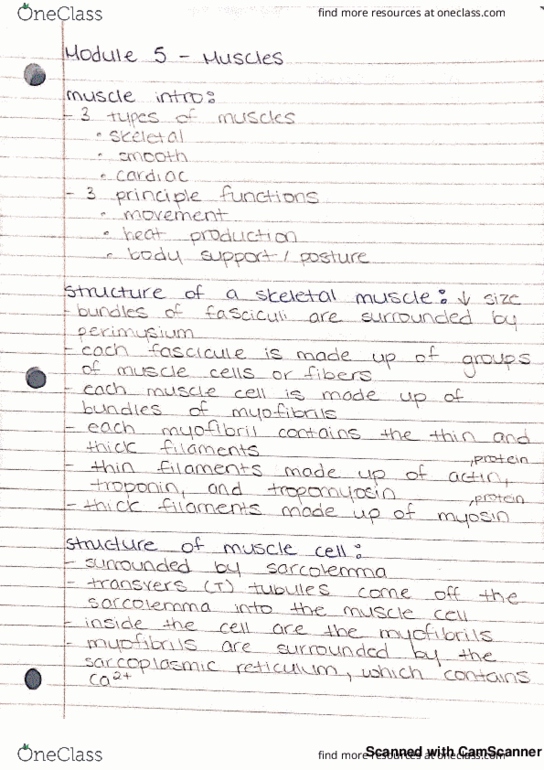 OneClass
find more resources at oneclass.com
Module 5 - Muscles
muscle intro:
- 3 types of muscles
• skeletal
• smooth
• cardiac
- 3 principle functions
• movement
• heat production
• body support / posture
structure of a skeletal muscle: ↓ size
- bundles of fasciculi are surrounded by
perimysium
- each fascicule is made up of groups
of muscle cells or fibers
- each muscle cell is made up of
bundles of myofibrils
- each myofibril contains the thin and
thick filaments
, protein
- thin filaments made up of actin,
troponin, and tropomyosin
, protein
- thick filaments made up of myosin
structure of muscle cell:
- surrounded by sarcolemma
- transvers (T) tubules come off the
sarcolemma into the muscle cell
- inside the cell are the myofibrils
- myofibrils are surrounded by the
sarcoplasmic reticulum, which contains
Ca²⁺
OneClass
find more resources at oneclass.com
Scanned with CamScanner